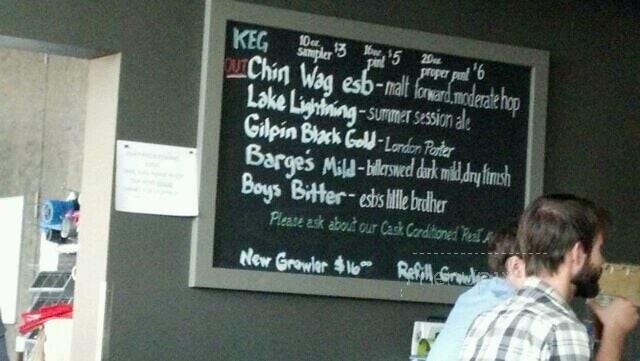 KEG 10 oz. sampler $3 16 oz. pint $5 20 oz. proper pint $6
OUT Chin Wag esb - malt forward, moderate hop
Lake Lightning - summer session ale
Gilpin Black Gold - London Porter
Barges Mild - bittersweet dark mild, dry finish
Boys Bitter - esb's little brother
Please ask about our Cask Conditioned "Real"
New Growler $16.00 Refill